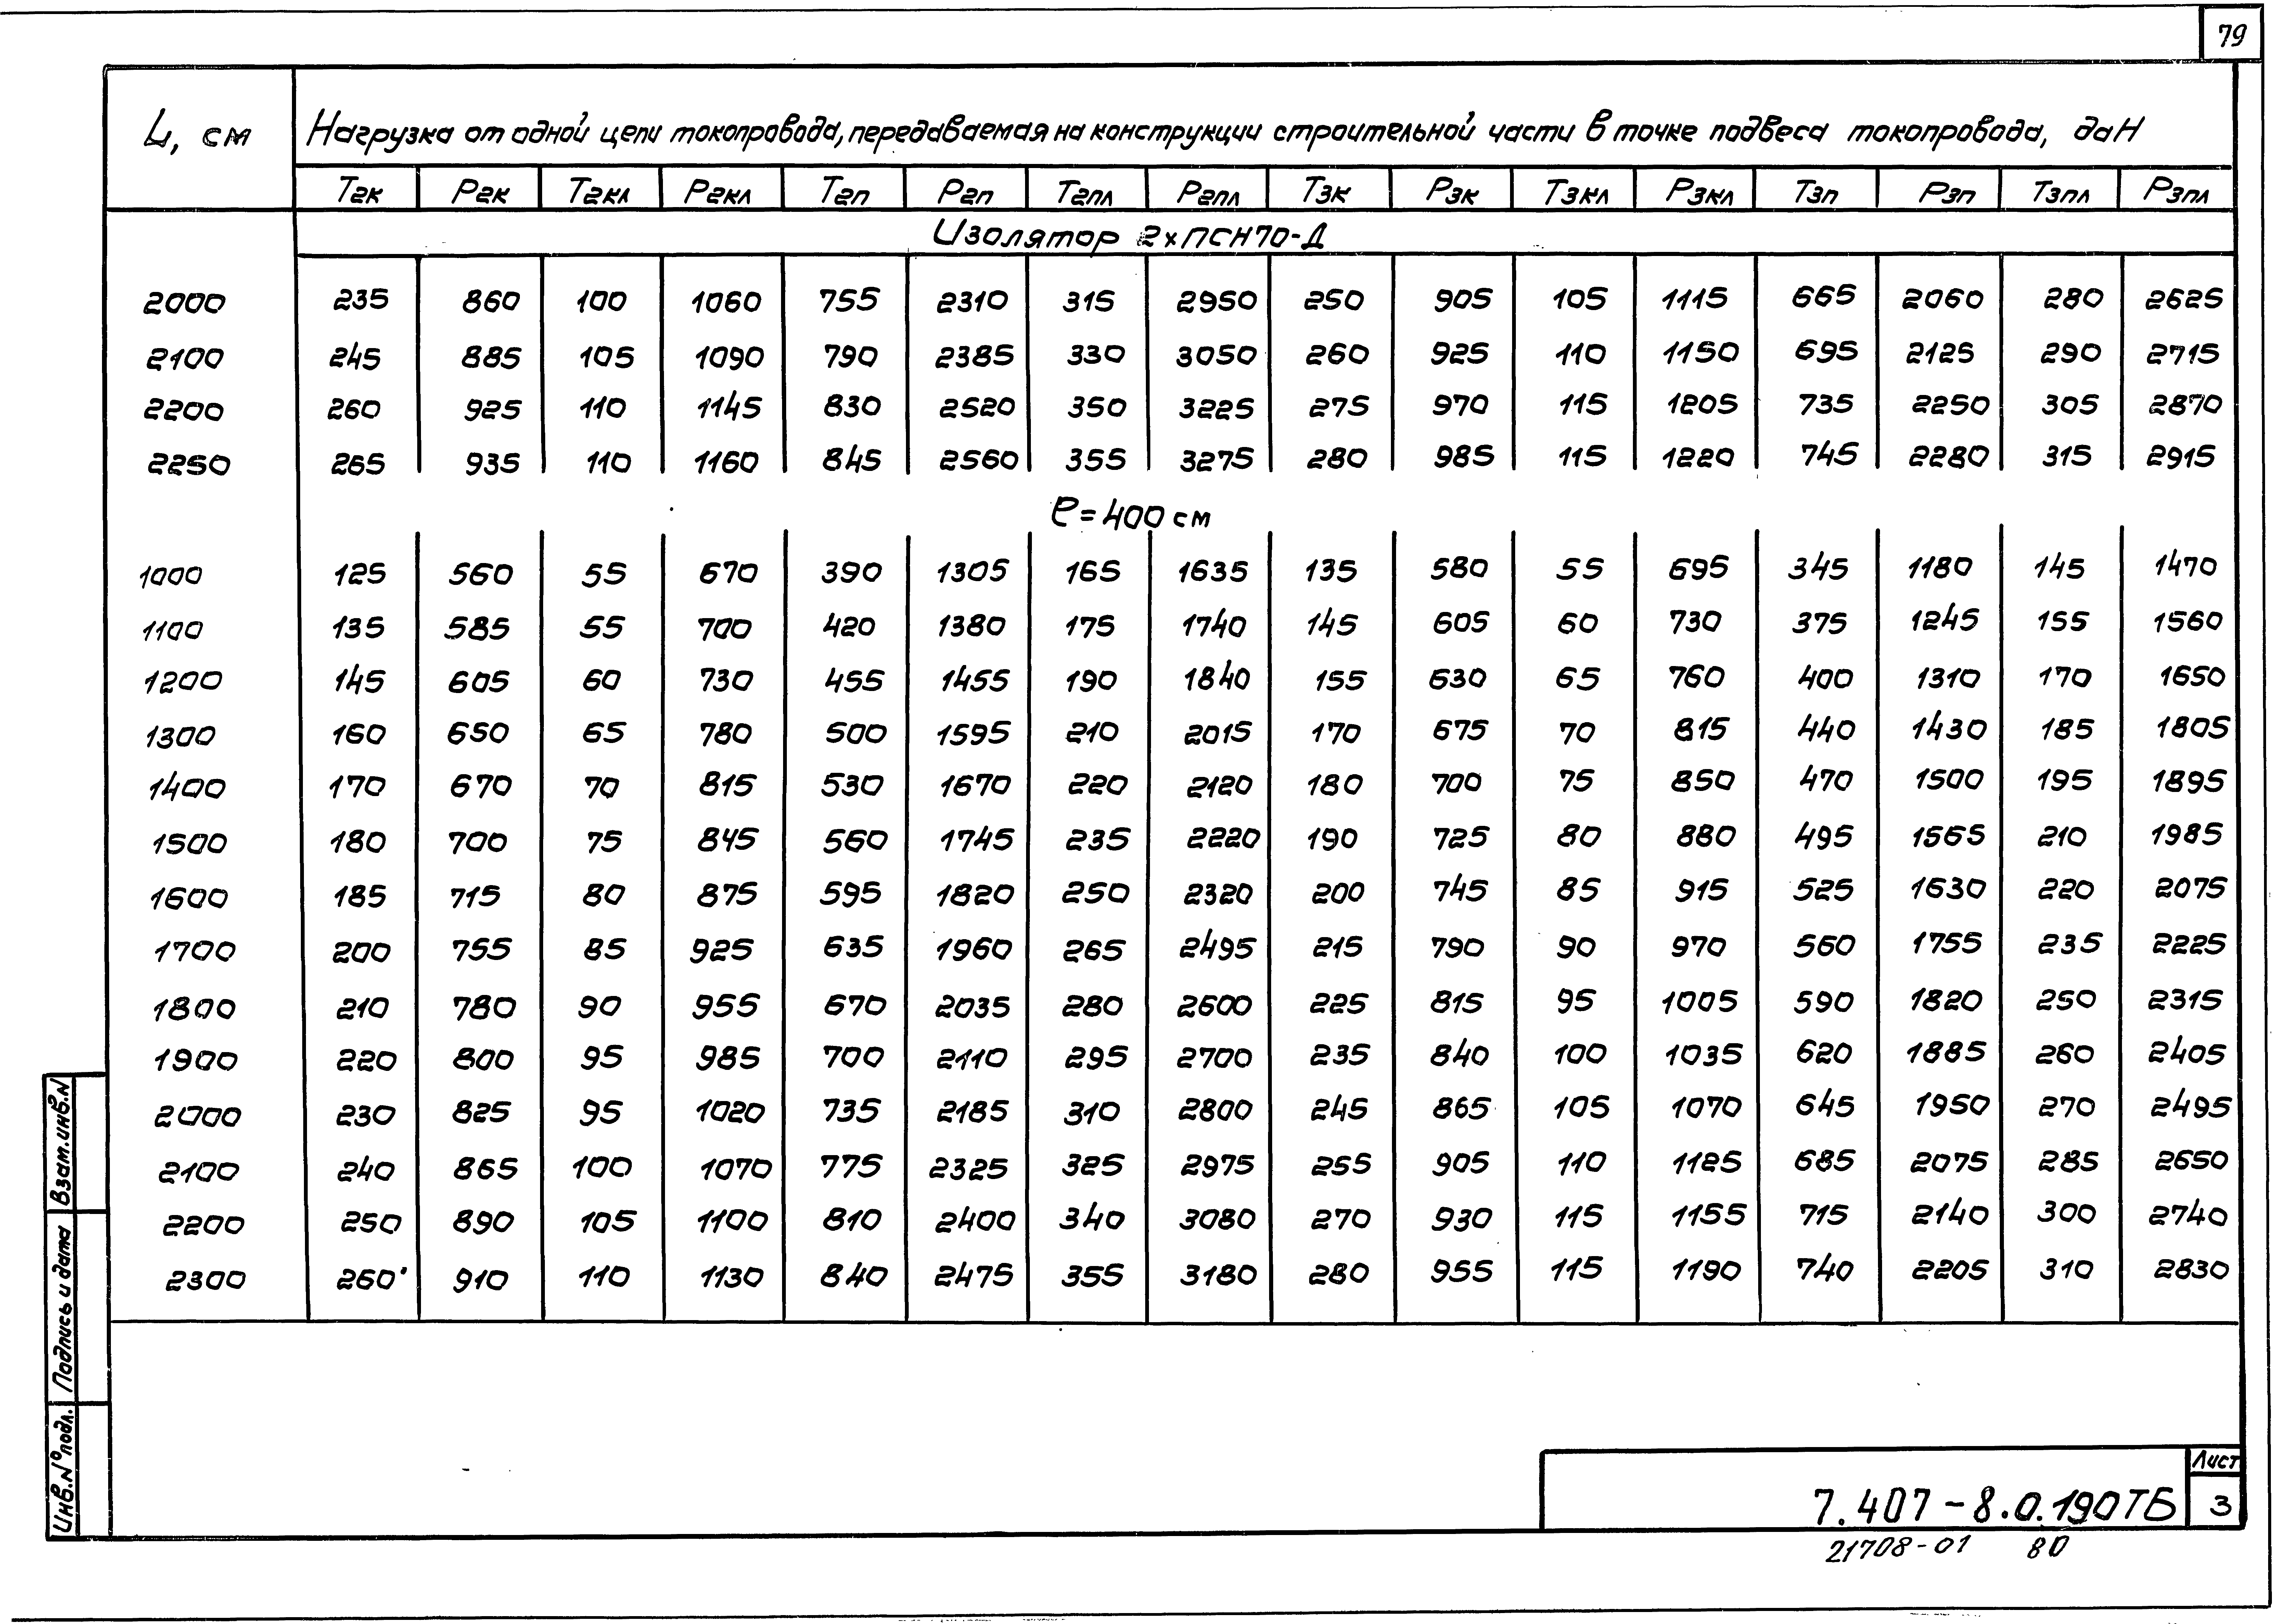 79
L, см Нагрузка от одной цепи токопровода, передаваемая на конструкции строительной части в точке подвеса токопровода, даН
Т2к Р2к Т2кл Р2кл Т2п Р2п Т2пл Р2пл Т3к Р3к Т3кл Р3кл Т3п Р3п Т3пл Р3пл
Изолятор 2хПСН70-Д
2000 235 860 100 1060 755 2310 315 2950 250 905 105 1115 665 2060 280 2625
2100 245 885 105 1090 790 2385 330 3050 260 925 110 1150 695 2125 290 2715
2200 260 925 110 1145 830 2520 350 3225 275 970 115 1205 735 2250 305 2870
2250 265 935 110 1160 845 2560 355 3275 280 985 115 1220 745 2280 315 2915
ℓ=400 см
1000 125 560 55 670 390 1305 165 1635 135 580 55 695 345 1180 145 1470
1100 135 585 55 700 420 1380 175 1740 145 605 60 730 375 1245 155 1560
1200 145 605 60 730 455 1455 190 1840 155 630 65 760 400 1310 170 1650
1300 160 650 65 780 500 1595 210 2015 170 675 70 815 440 1430 185 1805
1400 170 670 70 815 530 1670 220 2120 180 700 75 850 470 1500 195 1895
1500 180 700 75 845 560 1745 235 2220 190 725 80 880 495 1565 210 1985
1600 185 715 80 875 595 1820 250 2320 200 745 85 915 525 1630 220 2075
1700 200 755 85 925 635 1960 265 2495 215 790 90 970 560 1755 235 2225
1800 210 780 90 955 670 2035 280 2600 225 815 95 1005 590 1820 250 2315
1900 220 800 95 985 700 2110 295 2700 235 840 100 1035 620 1885 260 2405
2000 230 825 95 1020 735 2185 310 2800 245 865 105 1070 645 1950 270 2495
2100 240 865 100 1070 775 2325 325 2975 255 905 110 1125 685 2075 285 2650
2200 250 890 105 1100 810 2400 340 3080 270 930 115 1155 715 2140 300 2740
2300 260 910 110 1130 840 2475 355 3180 280 955 115 1190 740 2205 310 2830
Взам.инв.N
Подпись и дата
Инв.N°подл.
Лист
7.407-8.0.190ТБ 3
21708-01 80